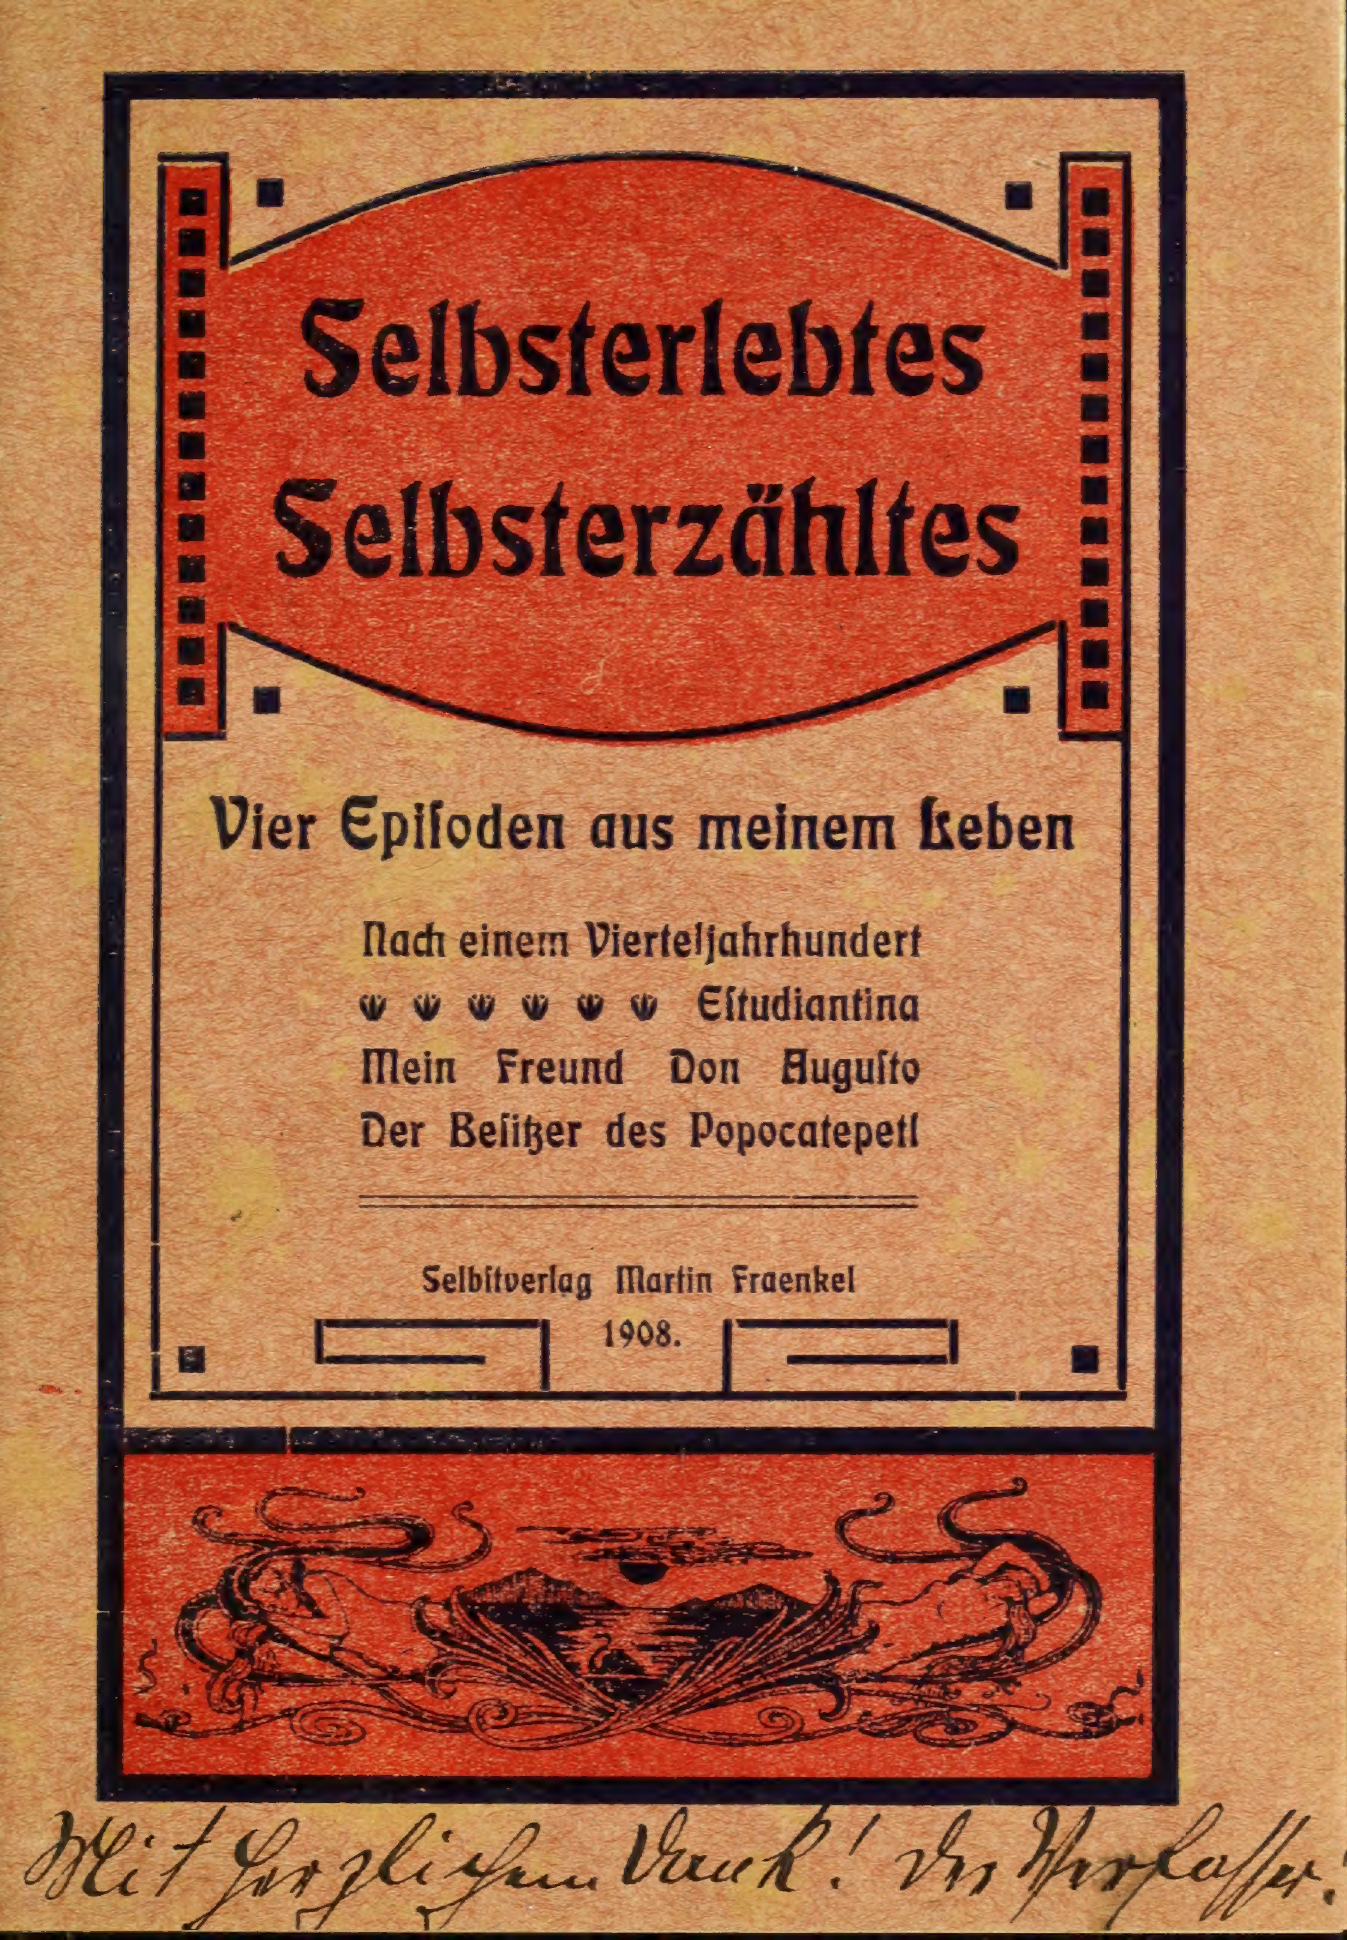 Selbsterlebtes
Selbsterzähltes
Vier Epiſoden aus meinem Leben
Nach einem Vierteljahrhundert
Eſtudiantina
Mein Freund Don Auguſto
Der Beſitzer des Popocatepetl
Selbſtverlag Martin Fraenkel
1908.
Mit herzlichem Dank! Der Verfasser.